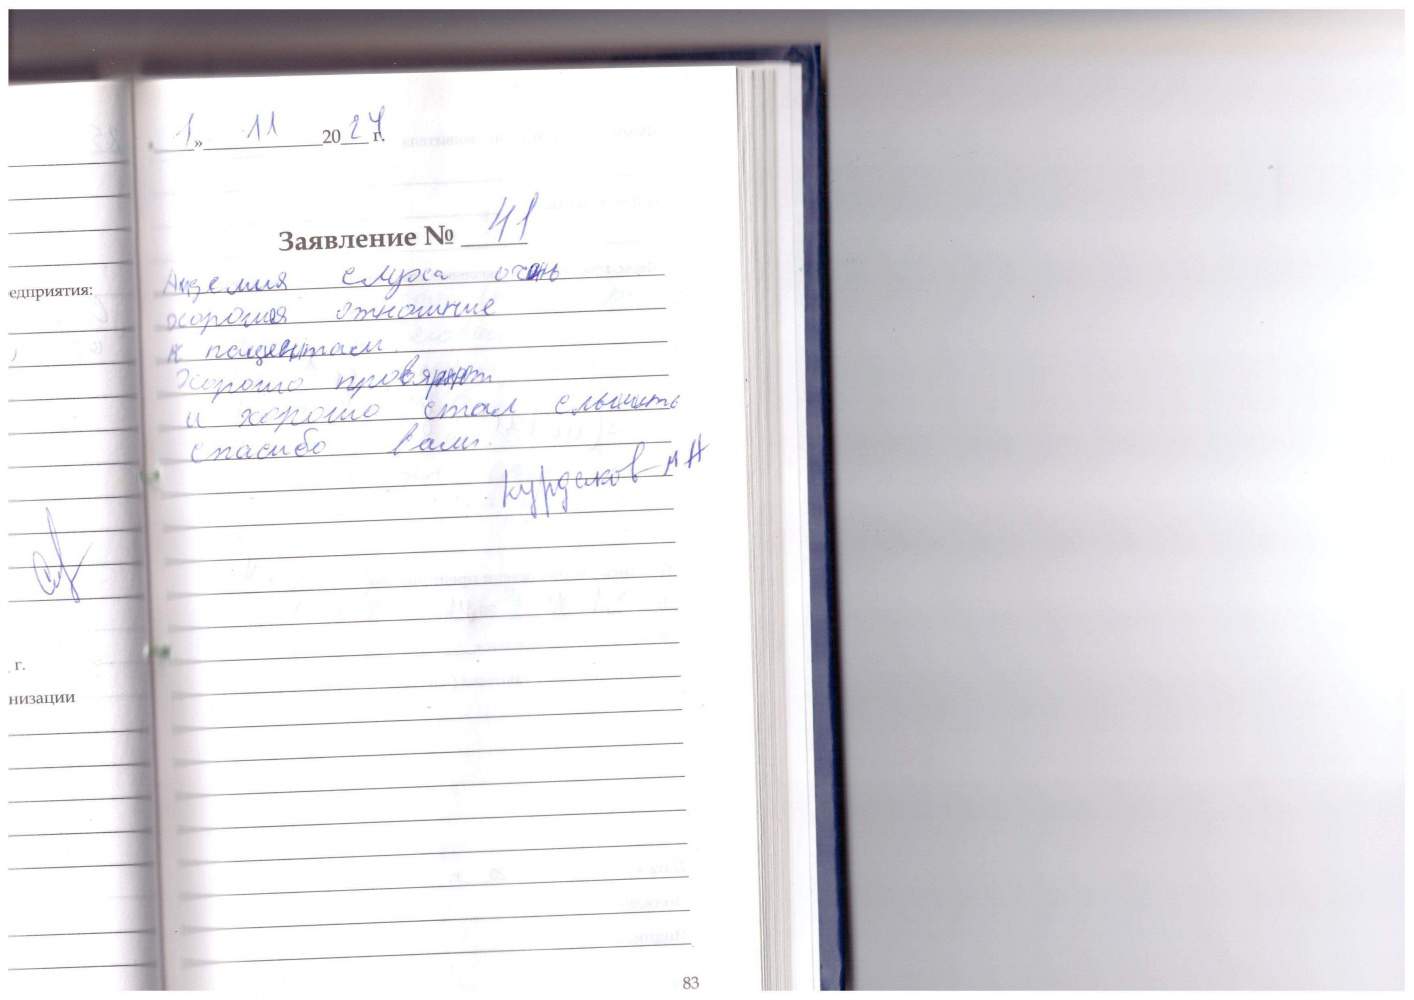 1» 11 2024 г.
Заявление № 41
Акдемия слуха очень
хорошая отношние
едприятия:
к пациентам.
Хорошо проверяют
и хорошо стал слышить
спасибо вам.
Курдаков М А
г.
низации
83